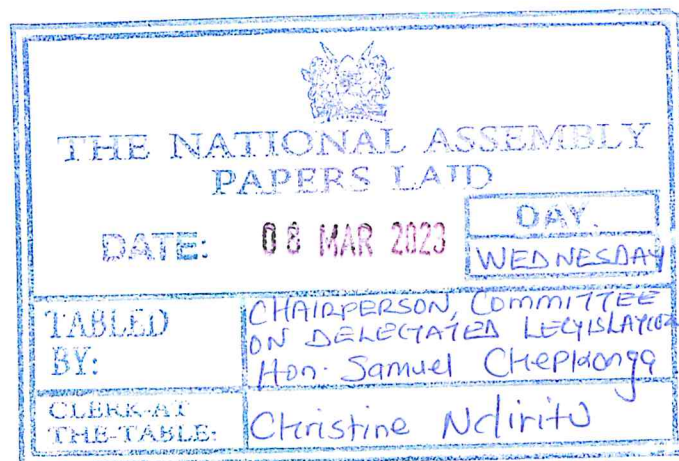 THE NATIONAL ASSEMBLY
PAPERS LAID
DATE: 08 MAR 2023
DAY.
WEDNESDAY
TABLED BY:
CHAIRPERSON, COMMITTEE
ON DELEGATED LEGISLATION
Hon. Samuel Chepkonga
CLERK-AT THE-TABLE:
Christine Ndiritu